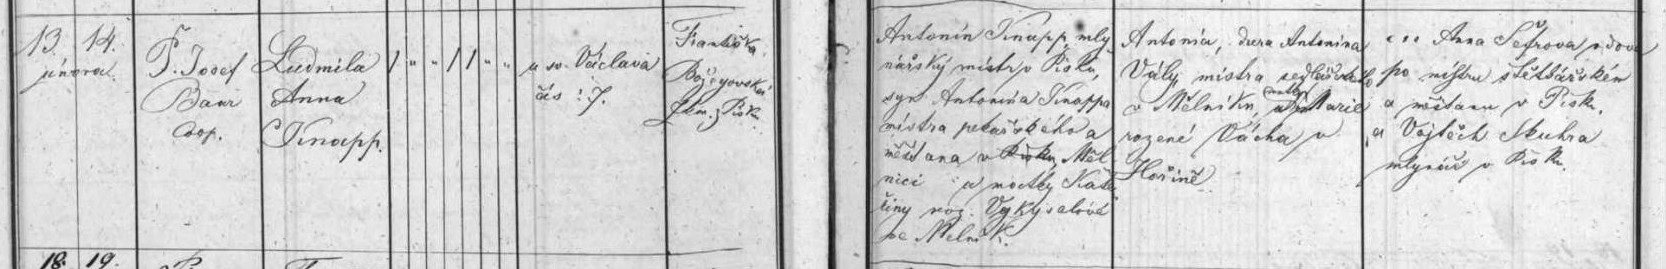 13. 14.
února.
P. Josef
Baur
Coop.
Ludmila
Anna
Knapp.
u sv. Václava
čís. 7.
Františka
zk. z Písku.
Antonín Knapp, mly-
nářský mistr v Písku,
syn Antonína Knappa
mistra pekařského a
měšťana v Písku, Měl
níci a matky Kate
řiny roz. Vykysalová
ze Mělník.
Antonia, dcera Antonína
Vály, mistra sedlářského
v Mělníku, a matky Marie
rozené Vácha v
Hoříně
Anna Šefrova vdova
po mistru štětkářském
a měšťanu v Písku.
a Vojtěch Skuhra
mlynář v Písku.
18. 19.